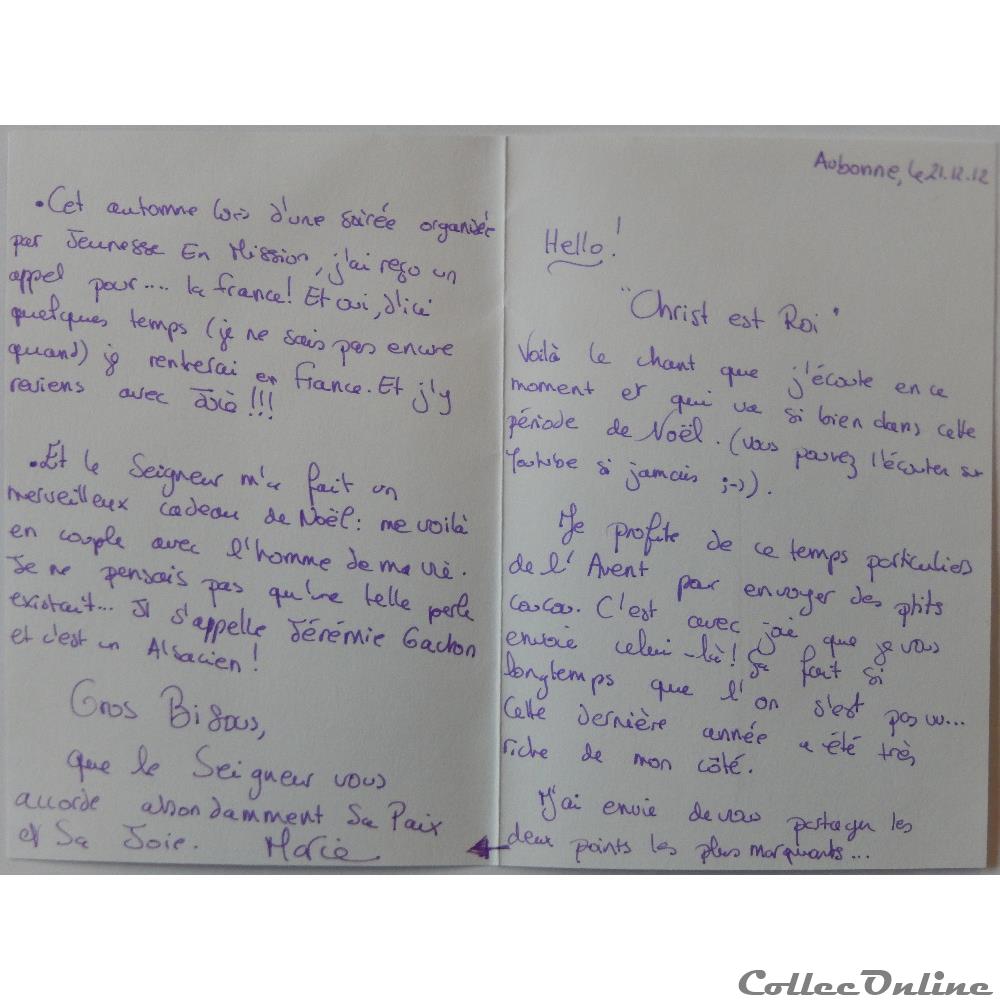 Aubonne, le 21.12.12
Hello!
"Christ est Roi"
Voilà le chant que j'écoute en ce
moment et qui va si bien dans cette
période de Noël. (vous pouvez l'écouter sur
Youtube si jamais ;-)).
Je profite de ce temps particulier
de l'Avent pour envoyer des ptits
coucou. C'est avec joie que je vous
envoie celui-là! ça fait si
longtemps que l'on s'est pas vu...
Cette dernière année a été très
riche de mon côté.
J'ai envie de vous partager les
deux points les plus marquants...
• Cet automne lors d'une soirée organisée
par Jeunesse En Mission, j'ai reçu un
appel pour.... la France! Et oui, d'ici
quelques temps (je ne sais pas encore
quand) je rentrerai en France. Et j'y
reviens avec joie!!!
• Et le Seigneur m'a fait un
merveilleux cadeau de Noël: me voilà
en couple avec l'homme de ma vie.
Je ne pensais pas qu'une telle perle
existait... Il s'appelle Jérémie Gachon
et c'est un Alsacien!
Gros Bisous,
que le Seigneur vous
accorde abondamment Sa Paix
et Sa Joie. Marie
CollecOnline